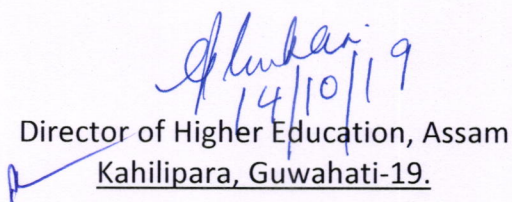 14/10/19
Director of Higher Education, Assam
Kahilipara, Guwahati-19.